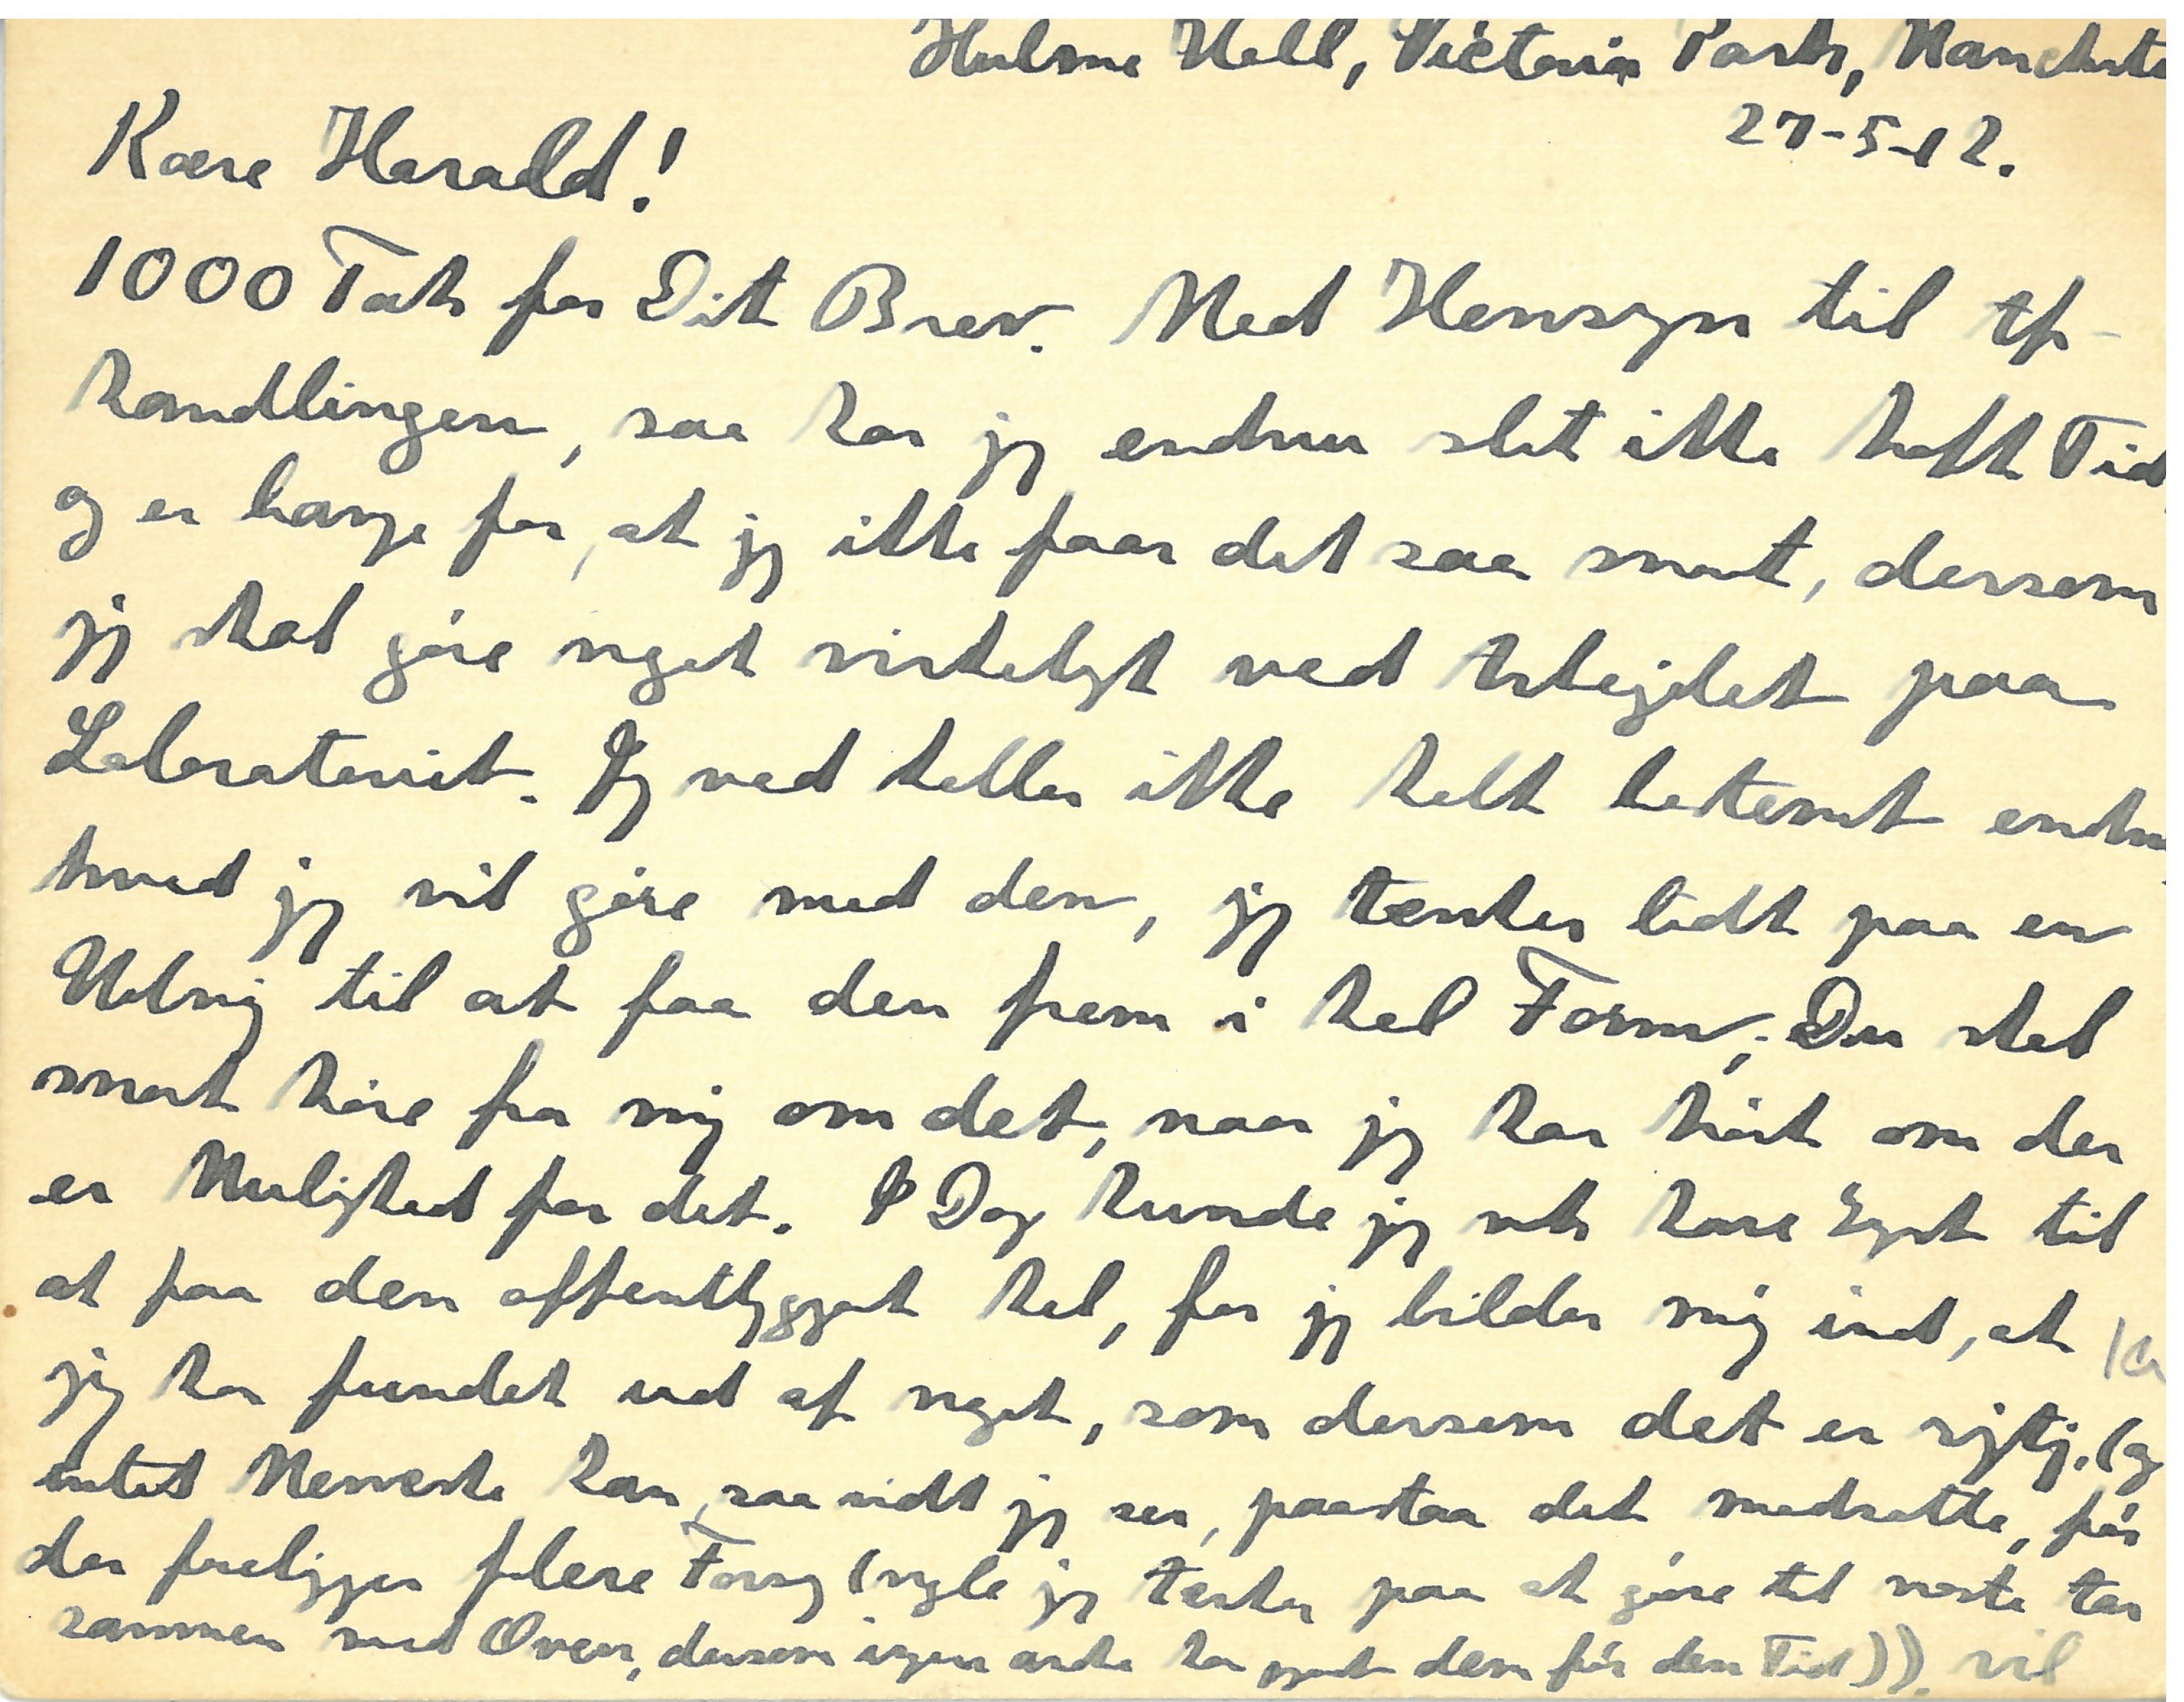 Hulme Hall, Victoria Park, Mancheste
27-5-12.
Kære Harald!
1000 Tak for Dit Brev. Med Hensyn til Af-
handlingen, saa har jeg endnu slet ikke haft Tid,
og er bange for, at jeg ikke faar det saa snart, dersom
jeg skal gøre noget virkeligt ved Arbejdet paa
Laboratoriet. Jeg ved heller ikke helt bestemt endnu,
hvad jeg vil gøre med den, jeg tænker lidt paa en
Udvej til at faa den frem i hel Form; Du skal
snart høre fra mig om det, naar jeg har hørt om der
er Mulighed for det. I Dag kunde jeg nok have Lyst til
at faa den offentliggjort hel, for jeg bilder mig ind, at
jeg har fundet ud af noget, som dersom det er rigtig, (og
intet Menneske kan, saa vidt jeg ser, paastaa det modsatte, før
der foreligger flere Forsøg (nogle jeg tænker paa at gøre til næste Aar
sammen med Owen, dersom ingen andre har gjort dem før den Tid)). vil